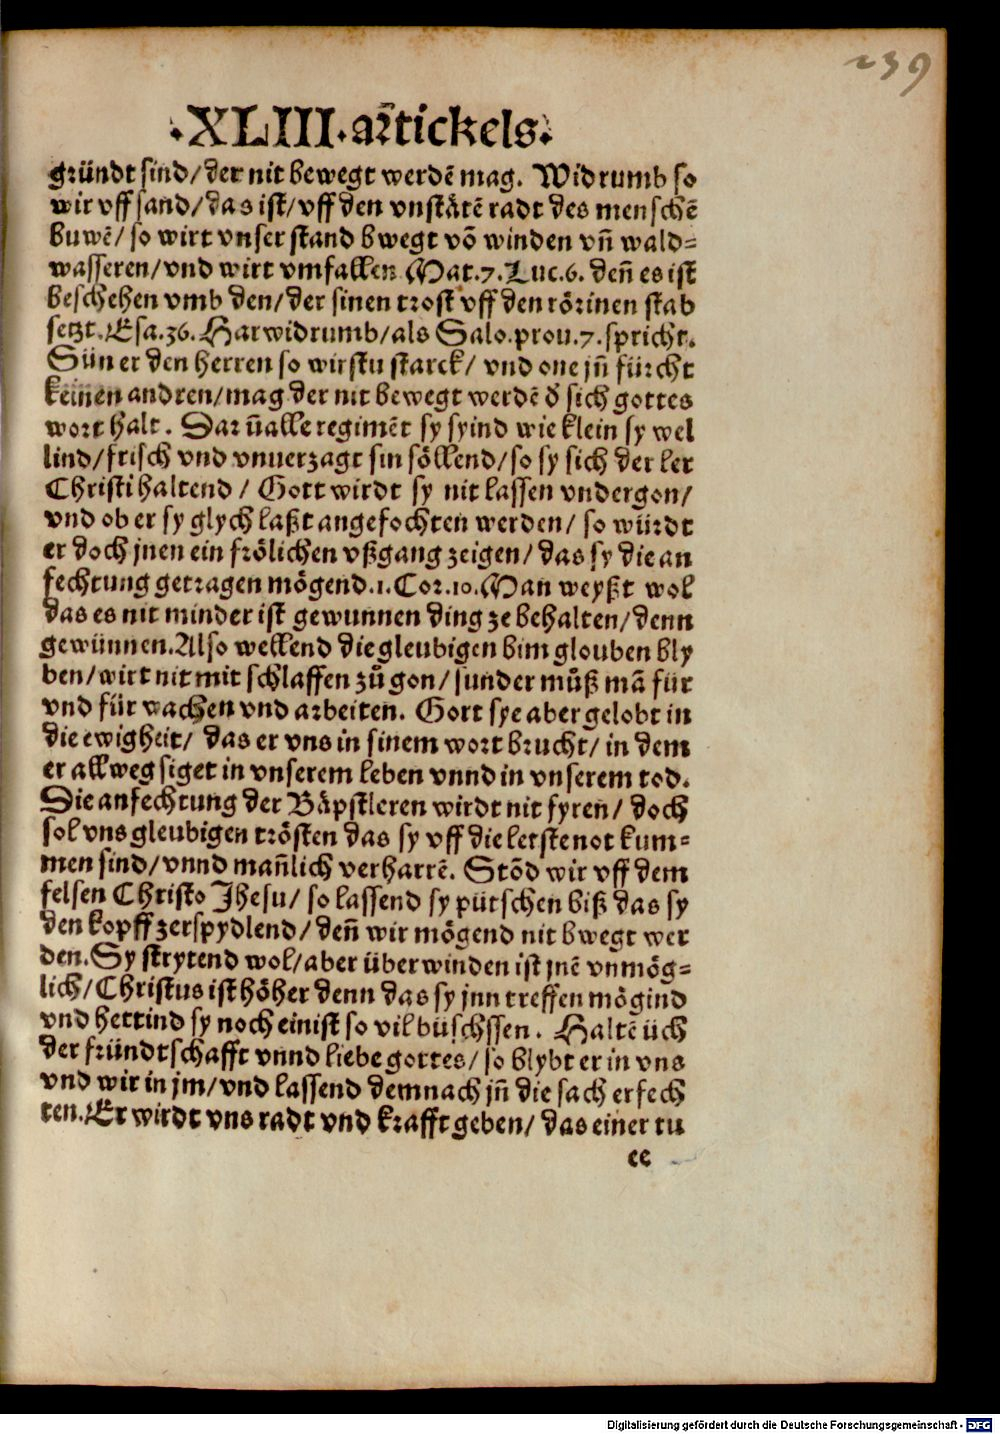 239
·XLIII·artickels·
gründt sind/der nit bewegt werdē mag. Widrumb so
wir vff sand/das ist/vff den vnstätē radt des menschē
buwē/so wirt vnser stand bwegt vō winden vn̄ wald=
wasseren/vnd wirt vmfallen Mat.7.Luc.6. den̄ es ist
beschehen vmb den/der sinen trost vff den rörinen stab
setzt.Esa.36.Harwidrumb/als Salo.prou.7.spricht.
Sün er den herren so wirstu starck/ vnd one jn̄ fürcht
keinen andren/mag der nit bewegt werdē d̄ sich gottes
wort halt. Dar um̄ alle regimēt sy syind wie klein sy wel
lind/frisch vnd vnuerzagt sin söllend/so sy sich der ler
Christi haltend/ Gott wirdt sy nit lassen vndergon/
vnd ob er sy glych laßt angefochten werden/ so würdt
er doch jnen ein frölichen vßgang zeigen/das sy die an
fechtung getragen mögend.1.Cor.10.Man weyßt wol
das es nit minder ist gewunnen ding ze behalten/denn
gewünnen.Also wellend die gleubigen bim glouben bly
ben/wirt nit mit schlaffen zů gon/sunder můß mā für
vnd für wachen vnd arbeiten. Gott sye aber gelobt in
die ewigheit/ das er vns in sinem wort brucht/in dem
er allweg siget in vnserem leben vnnd in vnserem tod.
Die anfechtung der Bäpstleren wirdt nit fyren/ doch
sol vns gleubigen trösten das sy vff die letste not kum=
men sind/vnnd man̄lich verharrē. Stōd wir vff dem
felsen Christo Jhesu/ so lassend sy pütschen biß das sy
den kopff zerspydlend/den̄ wir mögend nit bwegt wer
den.Sy strytend wol/aber überwinden ist jnē vnmög=
lich/Christus ist höher denn das sy jnn treffen mögind
vnd hettind sy noch einist so vil büschssen. Haltē üch
der fründtschafft vnnd liebe gottes/so blybt er in vns
vnd wir in jm/vnd lassend demnach jn̄ die sach erfech
ten.Er wirdt vns radt vnd krafft geben/das einer tu
ee
Digitalisierung gefördert durch die Deutsche Forschungsgemeinschaft - DFG